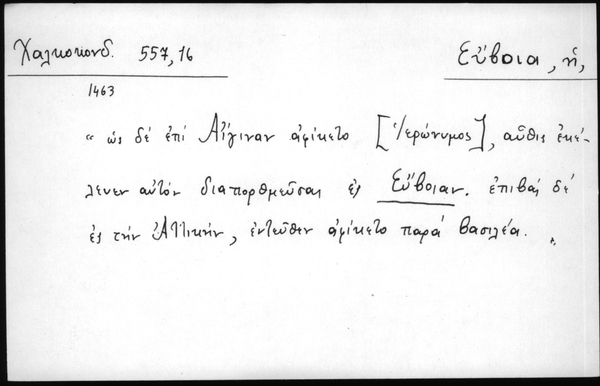 Χαλκοκονδ. 557,16
Εὔβοια, ἡ,
1463
“ ὡς δὲ ἐπὶ Αἴγιναν ἀφίκετο [Ἱερώνυμος], αὖθις ἐκέ-
λευεν αὐτὸν διαπορθμεῦσαι ἐς Εὔβοιαν. ἐπιβὰς δὲ
ἐς τὴν Ἀττικήν, ἐντεῦθεν ἀφίκετο παρὰ βασιλέα. „